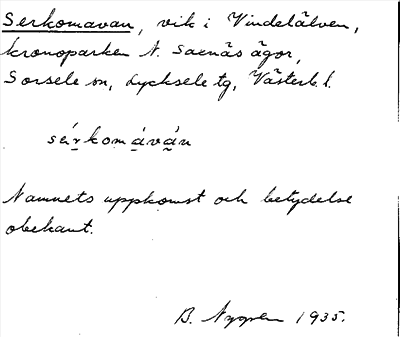 Serkomavan, vik i Vindelälven,
kronoparken N. Saenäs ägor,
Sorsele sn, Lycksele tg, Västerb. l.
sérkomàván
Namnets uppkomst och betydelse
obekant.
B. 1935.